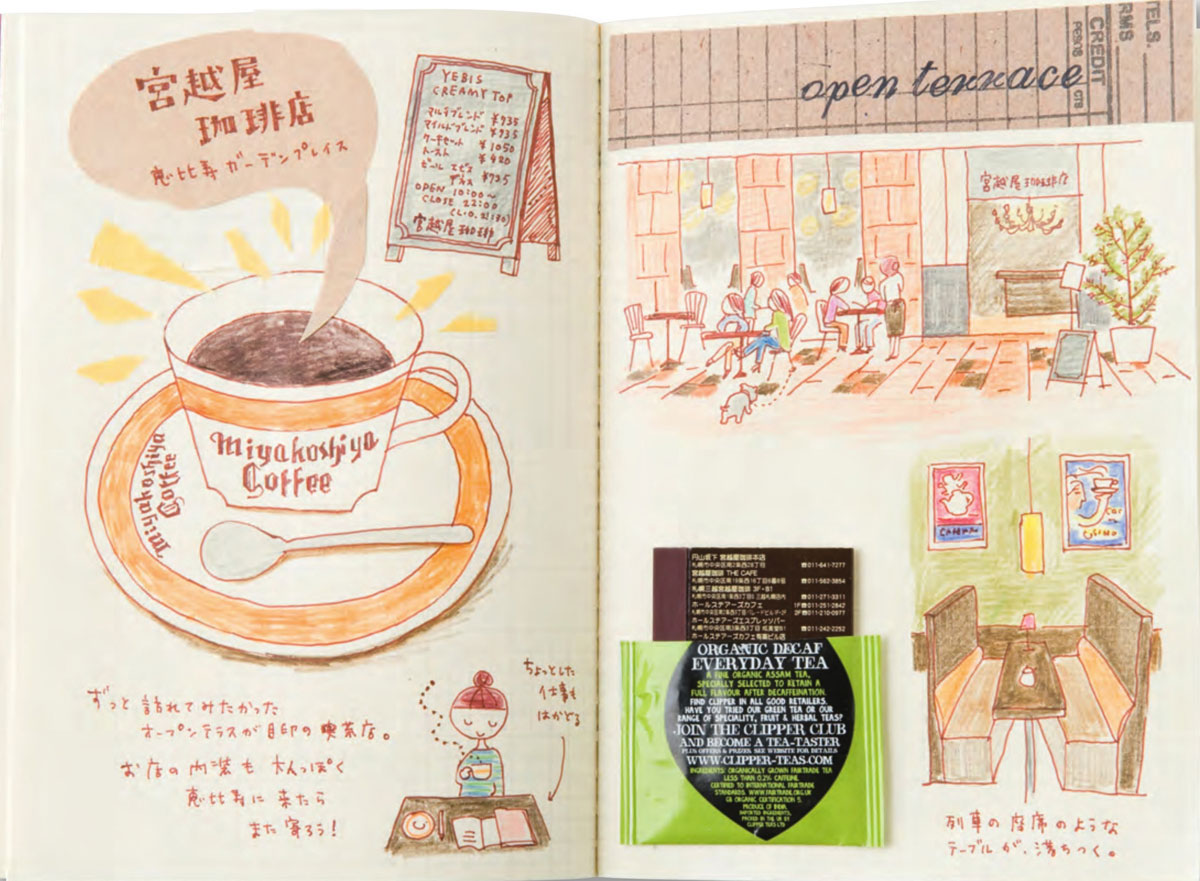 宮越屋
珈琲店
恵比寿 ガーデンプレイス
YEBIS
CREAMY TOP
マルテブレンド ¥935
マイルドブレンド ¥935
ケーキセット ¥1050
トースト ¥420
ビール エビス
グラス ¥735
OPEN 10:00〜
CLOSE 22:00
(L.O. 21:30)
宮越屋珈琲
Miyakoshiya
Coffee
Miyakoshiya
Coffee
ずっと 訪れてみたかった
オープンテラスが目印の喫茶店。
お店の内装も 大人っぽく
恵比寿に 来たら
また 寄ろう!
ちょっとした
仕事も
はかどる
TELS.
RMS
CREDIT
open terrace
宮越屋珈琲店
円山坂下 宮越屋珈琲本店
札幌市中央区南2条西28丁目 ☎011-641-7277
宮越屋珈琲 THE CAFE
☎011-562-3854
札幌三越宮越屋珈琲 3F・B1
☎011-271-3311
ホールステアーズカフェ 1F☎011-251-2842
2F☎011-210-0977
ホールステアーズエスプレッソバー
☎011-242-2252
ホールステアーズカフェ
ORGANIC DECAF
EVERYDAY TEA
A FINE ORGANIC ASSAM TEA,
SPECIALLY SELECTED TO RETAIN A
FULL FLAVOUR AFTER DECAFFEINATION.
FIND CLIPPER IN ALL GOOD RETAILERS.
HAVE YOU TRIED OUR GREEN TEA OR OUR
RANGE OF SPECIALITY, FRUIT & HERBAL TEAS?
JOIN THE CLIPPER CLUB
AND BECOME A TEA-TASTER
PLUS OFFERS & PRIZES. SEE WEBSITE FOR DETAILS
WWW.CLIPPER-TEAS.COM
INGREDIENTS: ORGANICALLY GROWN FAIRTRADE TEA
LESS THAN 0.2% CAFFEINE.
CERTIFIED TO INTERNATIONAL FAIRTRADE
STANDARDS. WWW.FAIRTRADE.ORG.UK
GB ORGANIC CERTIFICATION 5.
PRODUCE OF INDIA.
IMPORTED INGREDIENTS,
PACKED IN THE UK BY
CLIPPER TEAS LTD
列車の座席のような
テーブルが、落ちつく。